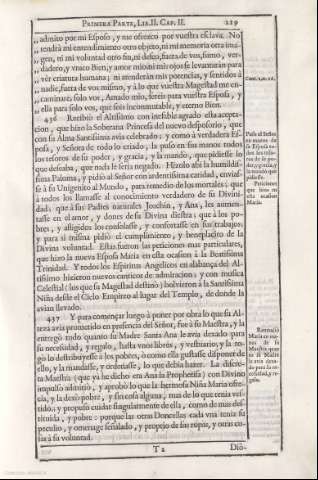 PRIMERA PARTE, LIB. II. CAP. II. 229
„ admito por mi Esposo, y me ofrezco por vuestra esclava. No
„ tendrá mi entendimiento otro objeto, ni mi memoria otra ima-
„ gen, ni mi voluntad otro fin, ni deseo, fuera de vos, sumo, ver-
„ dadero, y vnico Bien, y amor mio: ni mis ojos se levantarán para
„ vèr criatura humana; ni atenderán mis potencias, y sentidos à
„ nadie, fuera de vos mismo, y à lo que vuestra Magestad me en-
„ caminare; solo vos, Amado mio, sereis para vuestra Esposa, y
„ ella para solo vos, que sois incommutable, y eterno Bien.
436 Recibiò el Altissimo con inefable agrado esta accepta-
cion, que hizo la Soberana Princesa del nuevo desposorio, que
con su Alma Santissima avia celebrado: y como à verdadera Es-
posa, y Señora de todo lo criado, la puso en sus manos todos
los tesoros de su poder, y gracia, y la mandò, que pidiesse lo
que deseaba, que nada le seria negado. Hizolo assi la humildis-
sima Paloma, y pidiò al Señor con ardentissima caridad, embias-
se à su Unigenito al Mundo, para remedio de los mortales; que
à todos los llamasse al conocimiento verdadero de su Divini-
dad; que à sus Padres naturales Joachin, y Ana, les aumen-
tasse en el amor, y dones de su Divina diestra; que à los po-
bres, y afligidos los consolasse, y confortasse en sus trabajos;
y para si misma pidiò el cumplimiento, y beneplacito de la
Divina voluntad. Estas fueron las peticiones mas particulares,
que hizo la nueva Esposa Maria en esta ocasion à la Beatissima
Trinidad. Y todos los Espiritus Angelicos en alabança del Al-
tissimo hizieron nuevos canticos de admiracion; y con musica
Celestial (los que su Magestad destinò) bolvieron à la Santissima
Niña desde el Cielo Empireo al lugar del Templo, de donde la
avian llevado.
437 Y para començar luego à poner por obra lo que su Al-
teza avia prometido en presencia del Señor, fue à su Maestra, y la
entregò todo quanto su Madre Santa Ana le avia dexado para
su necessidad, y regalo, hasta vnos libros, y vestuario, y la ro-
gò lo distribuyesse à los pobres, ò como ella gustasse disponer de
ello, y la mandasse, y ordenasse, lo que debia hazer. La discre-
ta Maestra (que ya he dicho era Ana la Prophetisa) con Divino
impulso admitiò, y aprobò lo que la hermosa Niña Maria ofre-
cia, y la dexò pobre, y sin cosa alguna, mas de lo que tenia ves-
tido; y propuso cuidar singularmente de ella, como de mas des-
tituida, y pobre: porque las otras Doncellas cada vna tenia su
peculio, y omenage señalado, y proprio de sus ropas, y otras co-
sas à su voluntad.
Cant. 1. v. 15.
Puso el Señor
en manos de
su Esposa to-
dos los teso-
ros de su po-
der, y gracia, y
la mandò que
pidiesse.
Peticiones
que hizo en
esta ocasion
Maria.
Renunciò
Maria en ma-
nos de su
Maestra quan-
to su Madre
le avia dexa-
do para su ne-
cessidad, y re-
galo.
T 2 Diò-